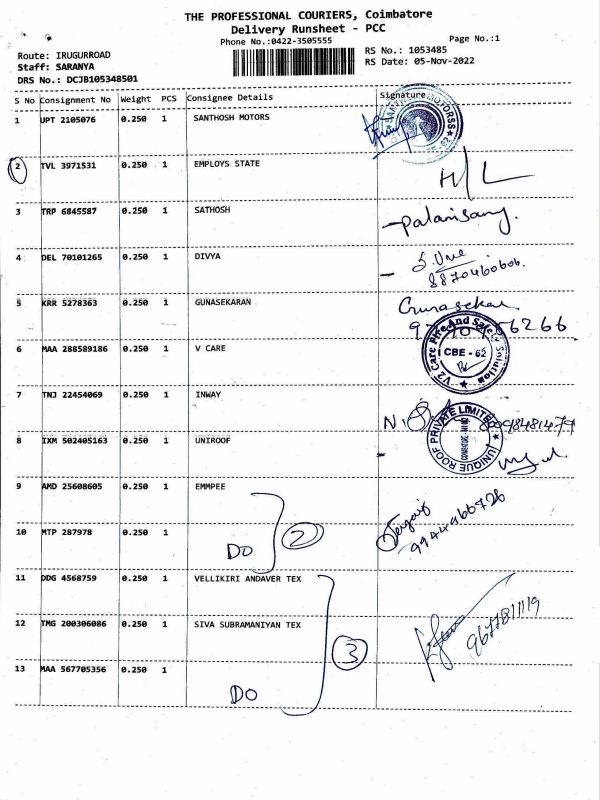 THE PROFESSIONAL COURIERS, Coimbatore
Delivery Runsheet - PCC
Phone No.:0422-3505555
Page No.:1
Route: IRUGURROAD
RS No.: 1053485
Staff: SARANYA
RS Date: 05-Nov-2022
DRS No.: DCJB105348501
S No Consignment No Weight PCS Consignee Details Signature
1 UPT 2105076 0.250 1 SANTHOSH MOTORS
2 TVL 3971531 0.250 1 EMPLOYS STATE H/L
3 TRP 6845587 0.250 1 SATHOSH Palanisamy.
4 DEL 70101265 0.250 1 DIVYA
8870460606.
5 KRR 5278363 0.250 1 GUNASEKARAN Gunasekar
56266
6 MAA 288589186 0.250 1 V CARE V2 Care Fire And Safety Solution CBE - 62
7 TNJ 22454069 0.250 1 INWAY
8 IXM 502405163 0.250 1 UNIROOF UNIQUE ROOF PRIVATE LIMITED
9 AMD 25608605 0.250 1 EMMPEE
9944966726
10 MTP 287978 0.250 1
DO 2
11 DDG 4568759 0.250 1 VELLIKIRI ANDAVER TEX
12 TMG 200306086 0.250 1 SIVA SUBRAMANIYAN TEX
9677811119
3
13 MAA 567705356 0.250 1
DO